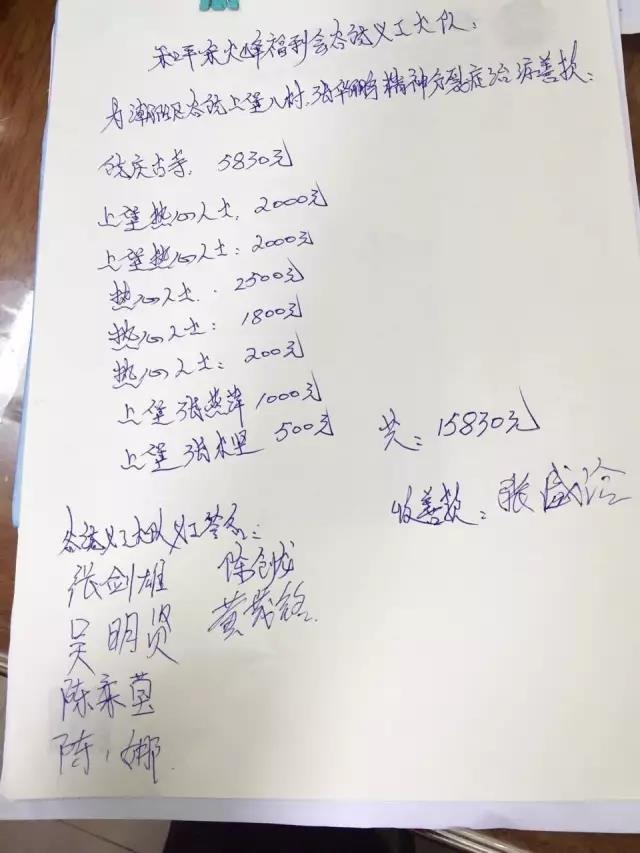 和平宋大峰福利会谷饶义工大队:
为潮阳区谷饶上堡八村,张华鹏精神分裂症治病善款:
庆古寺, 5830元
上堡热心人士, 2000元
上堡热心人士: 2000元
热心人士. 2500元
热心人士: 1800元
热心人士: 200元
上堡张燕萍 1000元
上堡 张木坚 500元
共: 15830元
收善款: 张盛
谷饶义工大队义工签名:
张剑雄 陈创龙
吴明贤 黄
陈
陈 娜